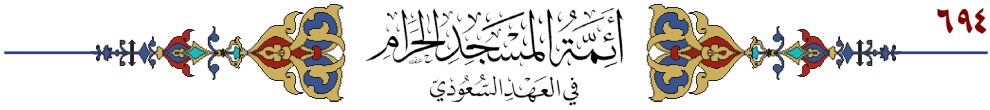 ٦٩٤
أَئِمَّةُ المَسْجِدِ الحَرَامِ
فِي العَهْدِ السُّعُودِيّ